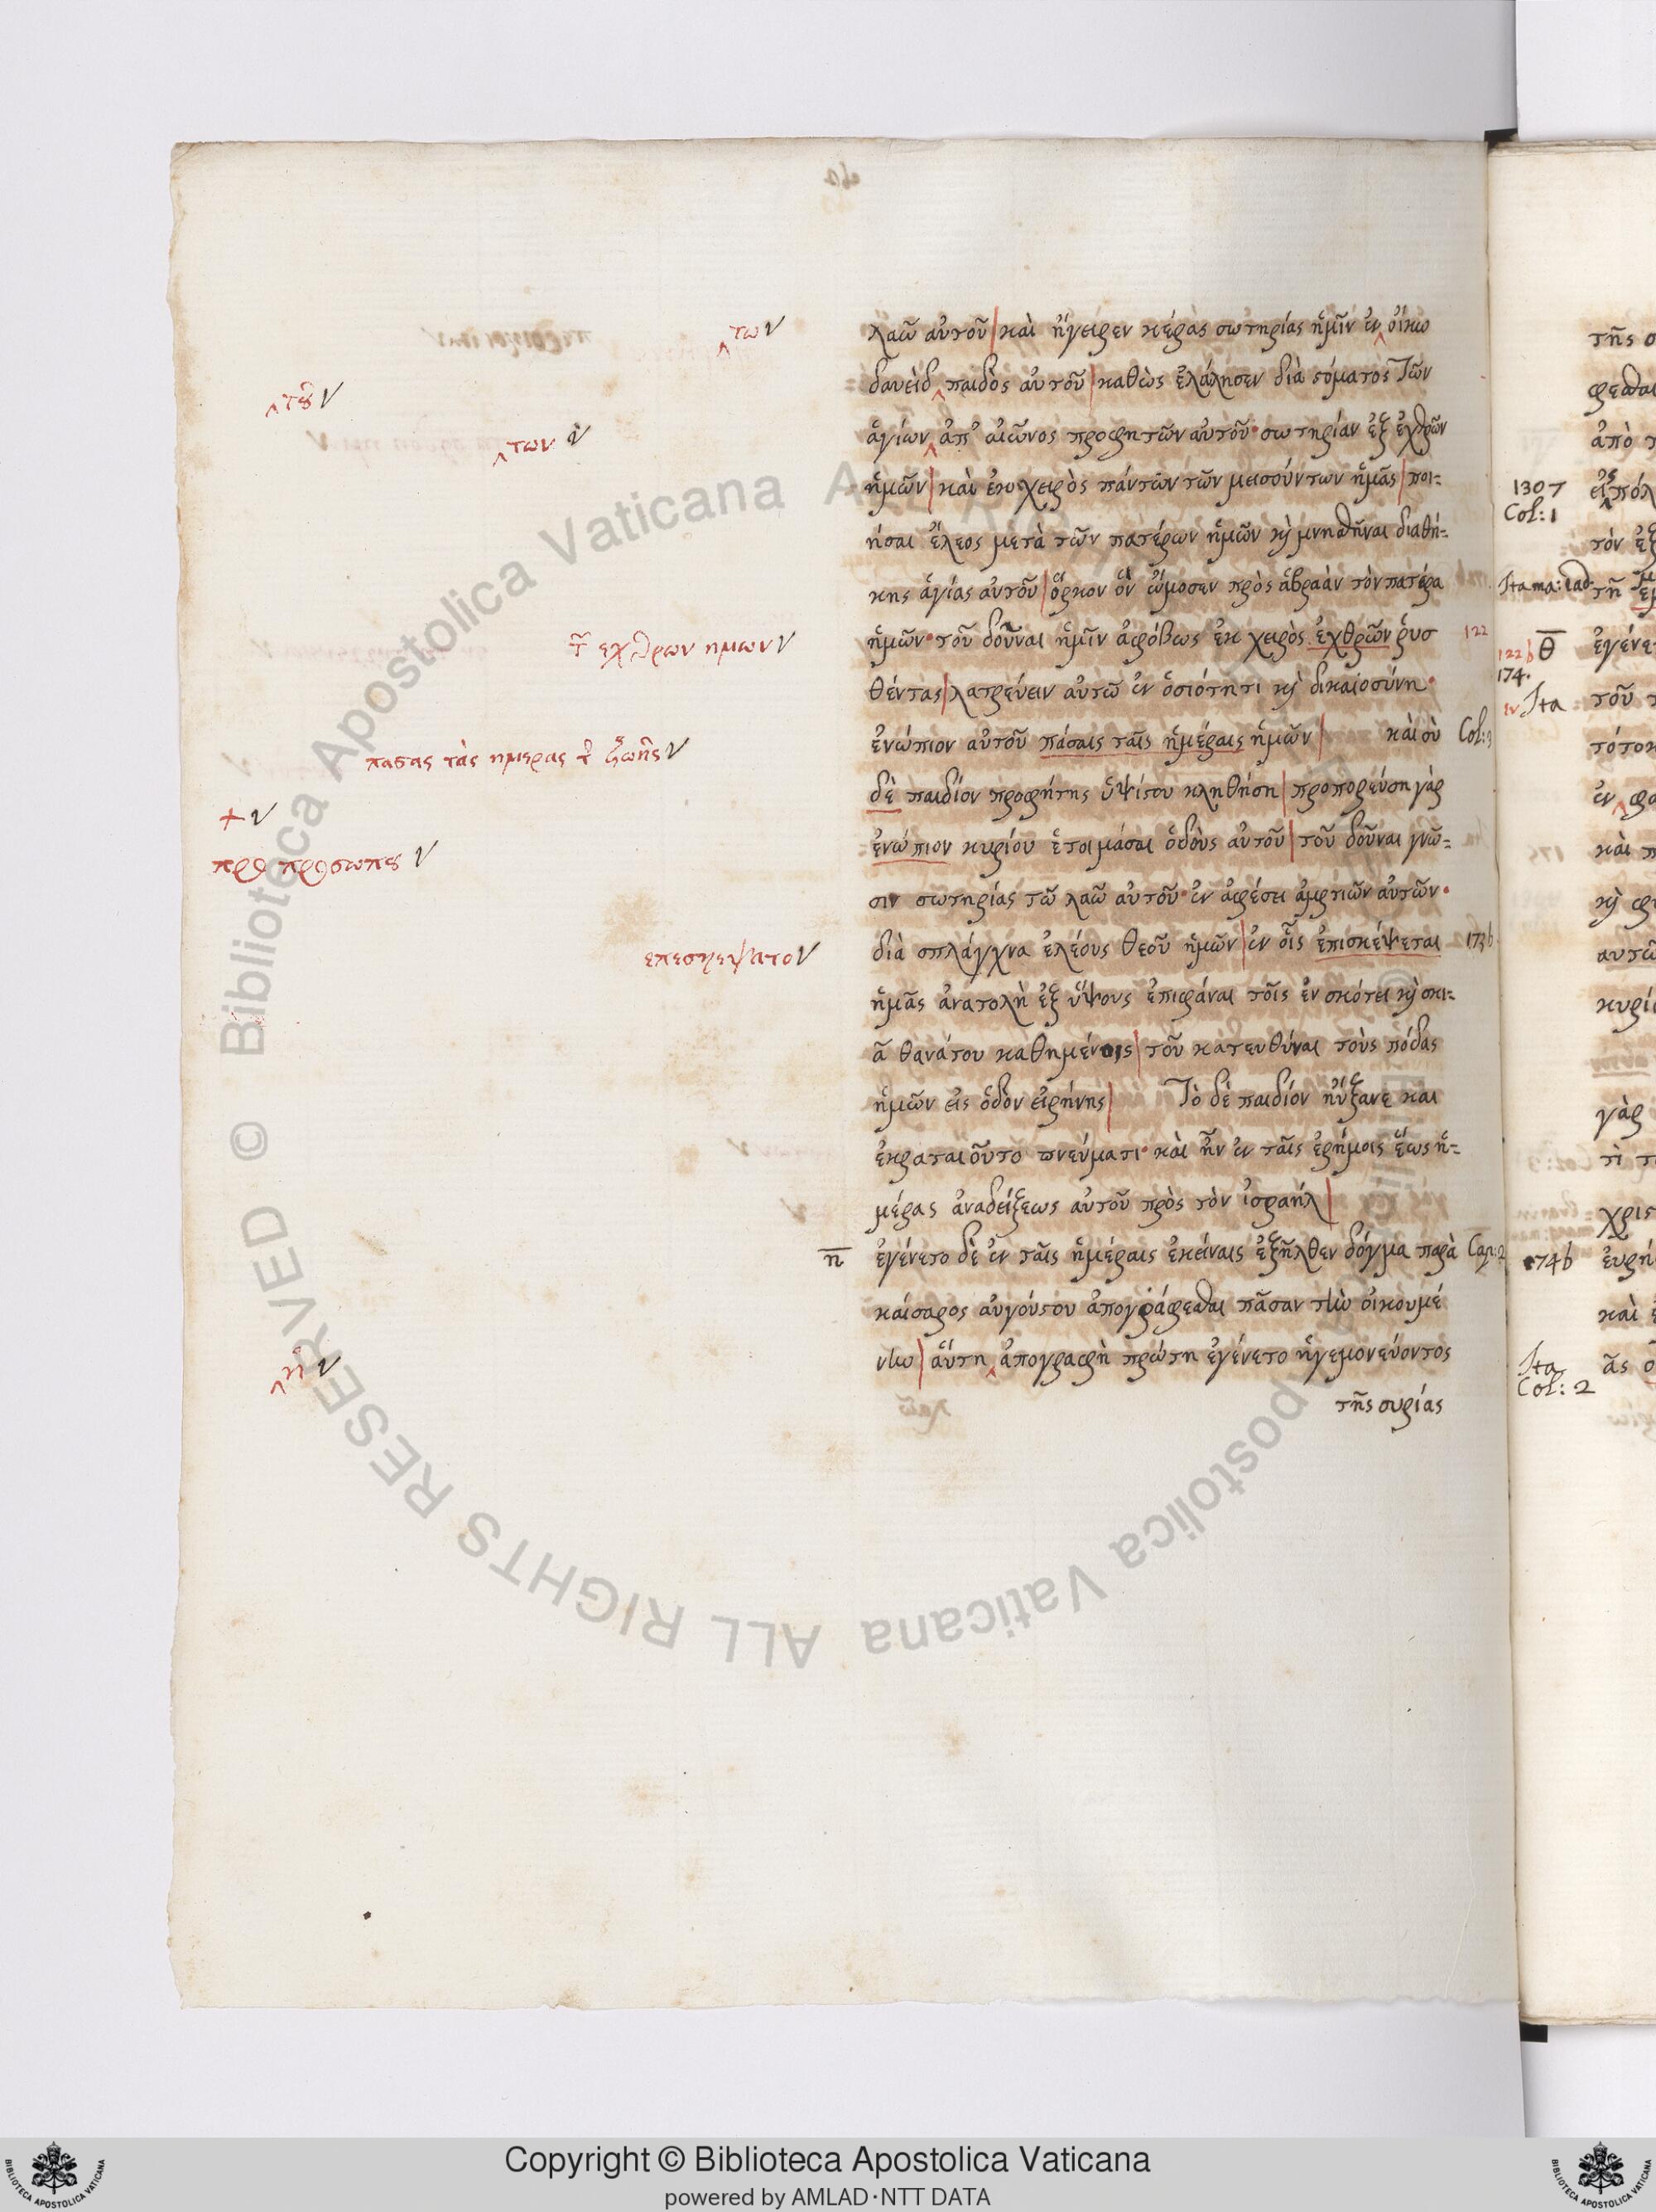 λαῶ αὐτοῦ| καὶ ἤγειρεν κέρας σωτηρίας ἡμῖν ἐν ‸ οἴκω
‸ τω ν
δαυεὶδ ‸ παιδὸς αὐτοῦ| καθὼς ἐλάλησεν διὰ στόματος τῶν
‸ τȣ͂ ν
ἁγίων ‸ ἀπ' αἰῶνος προφητῶν αὐτοῦ· σωτηρίαν ἐξ ἐχθρῶν
‸ των ν
ἡμῶν| καὶ ἐκ χειρὸς πάντων τῶν μεισούντων ἡμᾶς| ποι-
ήσαι ἔλεος μετὰ τῶν πατέρων ἡμῶν κ μνησθῆναι διαθή-
κης ἁγίας αὐτοῦ| ὅρκον ὃν ὤμοσεν πρὸς ἁβραὰν τὸν πατέρα
ἡμῶν· τοῦ δοῦναι ἡμῖν ἀφόβως ἐκ χειρὸς ἐχθρῶν ῥυσ 122
τ εχθρων ημων ν
θέντας| λατρεύειν αὐτῶ ἐν ὁσιότητι κ δικαιοσύνη·
ἐνώπιον αὐτοῦ πάσαις ταῖς ἡμέραις ἡμῶν| καὶ σὺ Col: 3
πασας τὰς ημερας τ ζωῆς ν
δὲ παιδίον προφήτης ὑψίστου κληθήση| προπορεύση γὰρ
+ ν
ἐνώπιον κυρίου ἑτοιμάσαι ὁδοὺς αὐτοῦ| τοῦ δοῦναι γνῶ-
προ προσωπȣ ν
σιν σωτηρίας τῶ λαῶ αὐτοῦ· ἐν ἀφέσει ἁμρτιῶν αὐτῶν·
διὰ σπλάγχνα ἐλέους θεοῦ ἡμῶν| ἐν οἷς ἐπισκέψεται 173b
επεσκεψατο ν
ἡμᾶς ἀνατολὴ ἐξ ὕψους ἐπιφάναι τοῖς ἐν σκότει κ σκι-
ᾶ θανάτου καθημένοις| τοῦ κατευθύναι τοὺς πόδας
ἡμῶν εἰς ὁδὸν εἰρήνης| Τὸ δὲ παιδίον ηὔξανε και
ἐκραταιοῦτο πνεύματι· καὶ ἦν ἐν ταῖς ἐρήμοις ἕως ἡ-
μέρας ἀναδείξεως αὐτοῦ πρὸς τὸν ἰσραήλ|
η ἐγένετο δὲ ἐν ταῖς ἡμέραις ἐκείναις ἐξῆλθεν δόγμα παρὰ Cap: 2
καίσαρος αὐγούστου ἀπογράφεσθαι πᾶσαν τὴν οἰκουμέ
νην| αὕτη ‸ ἀπογραφὴ πρώτη ἐγένετο ἡγεμονεύοντος
‸ ἡ ν
τῆς συρίας
1307
Col: 1
122b θ
174.
Ita
174b
Ita
Col: 2
Copyright © Biblioteca Apostolica Vaticana
powered by AMLAD·NTT DATA
Biblioteca Apostolica Vaticana ALL RIGHTS RESERVED ©